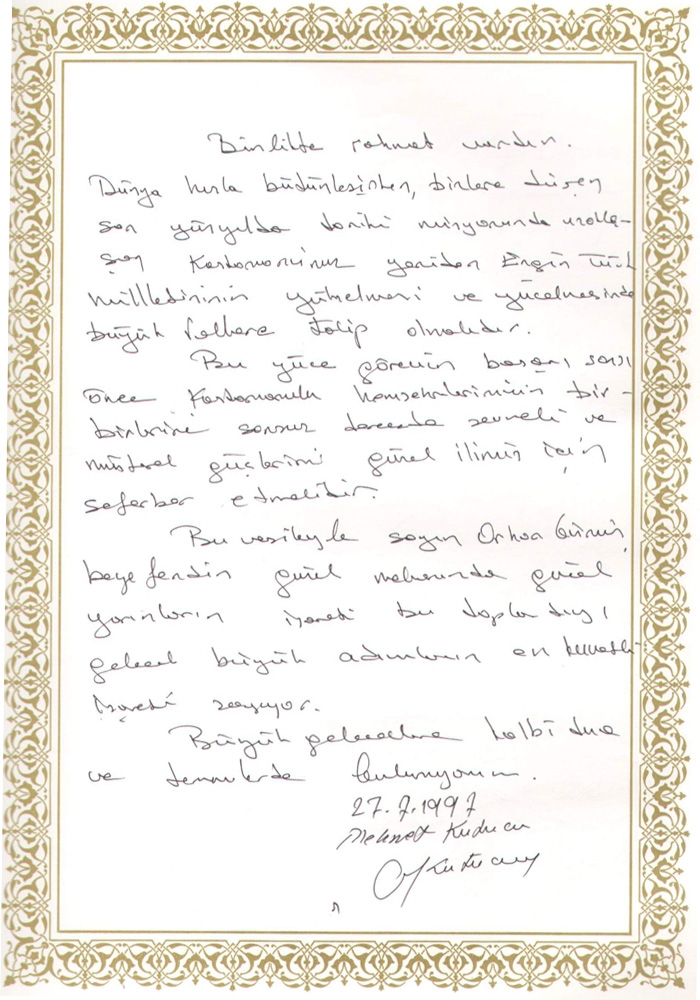 Birlikte rahmet vardır.
Dünya hızla bütünleşirken, bizlere düşen
son yüzyılda tarihi misyonunda uzakla-
şan Kastamonunuz yeniden Engin Türk
millletininin yükselmesi ve yücelmesinde
büyük rollere talip olmalıdır.
Bu yüce görevin başarı sansı
önce Kastamonulu hemşehrilerimizin bir-
birlerini sonsuz derecede sevmeli ve
müşterek güçlerini güzel ilimiz için
seferber etmelidir.
Bu vesileyle sayın Orhan
beyefendin güzel mekanında güzel
yarınların işareti bu toplantıyı
gelecek büyük adımların en kuvvetli
işareti sayıyor.
Büyük geleceklere kalbi dua
ve temenilerde bulunuyorum.
27.7.1997
Mehmet Kutucu